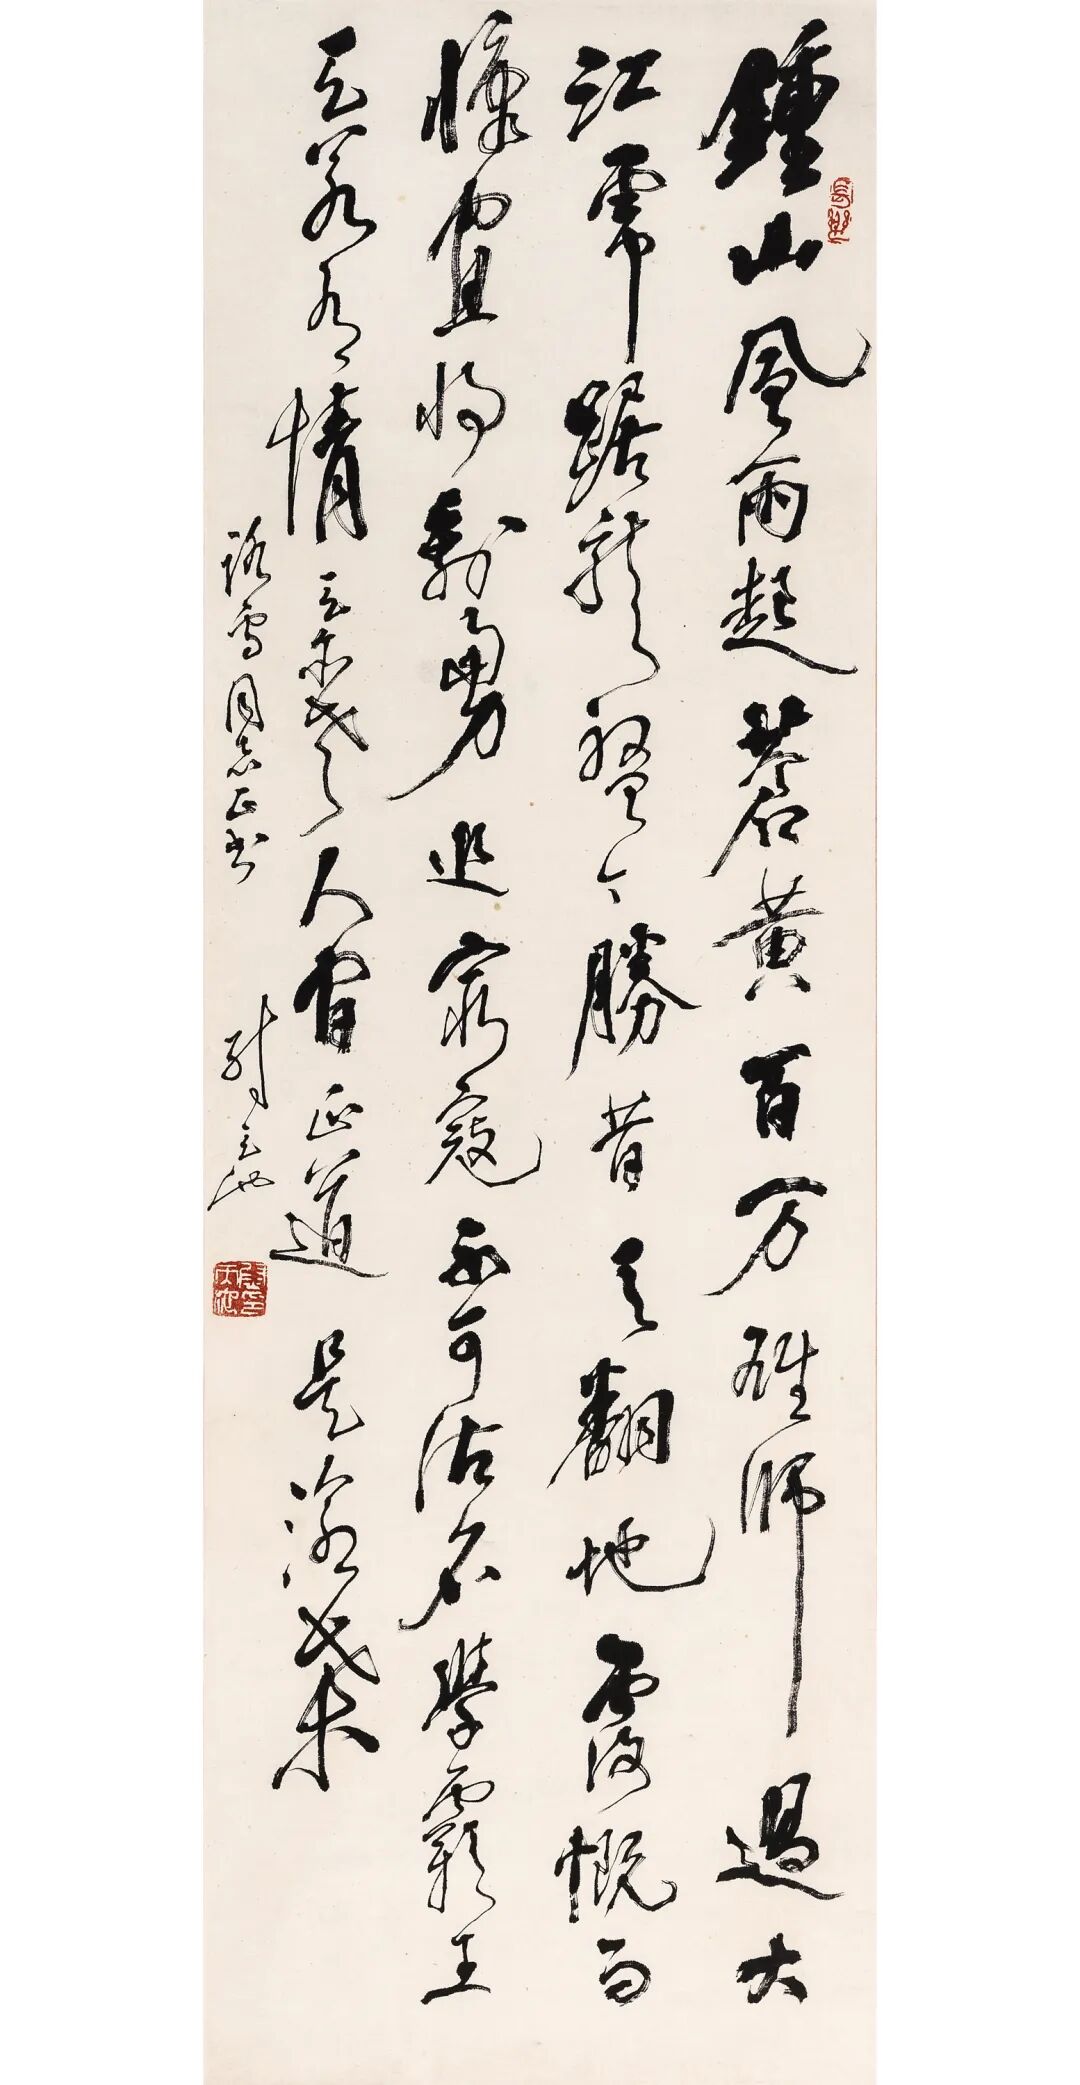 鍾山風雨起蒼黃百万雄師過大
江虎踞龍盤今勝昔天翻地覆慨而
慷宜將剩勇追窮寇不可沽名學霸王
天若有情天亦老人間正道是滄桑
詠雪同志正書 尉天池